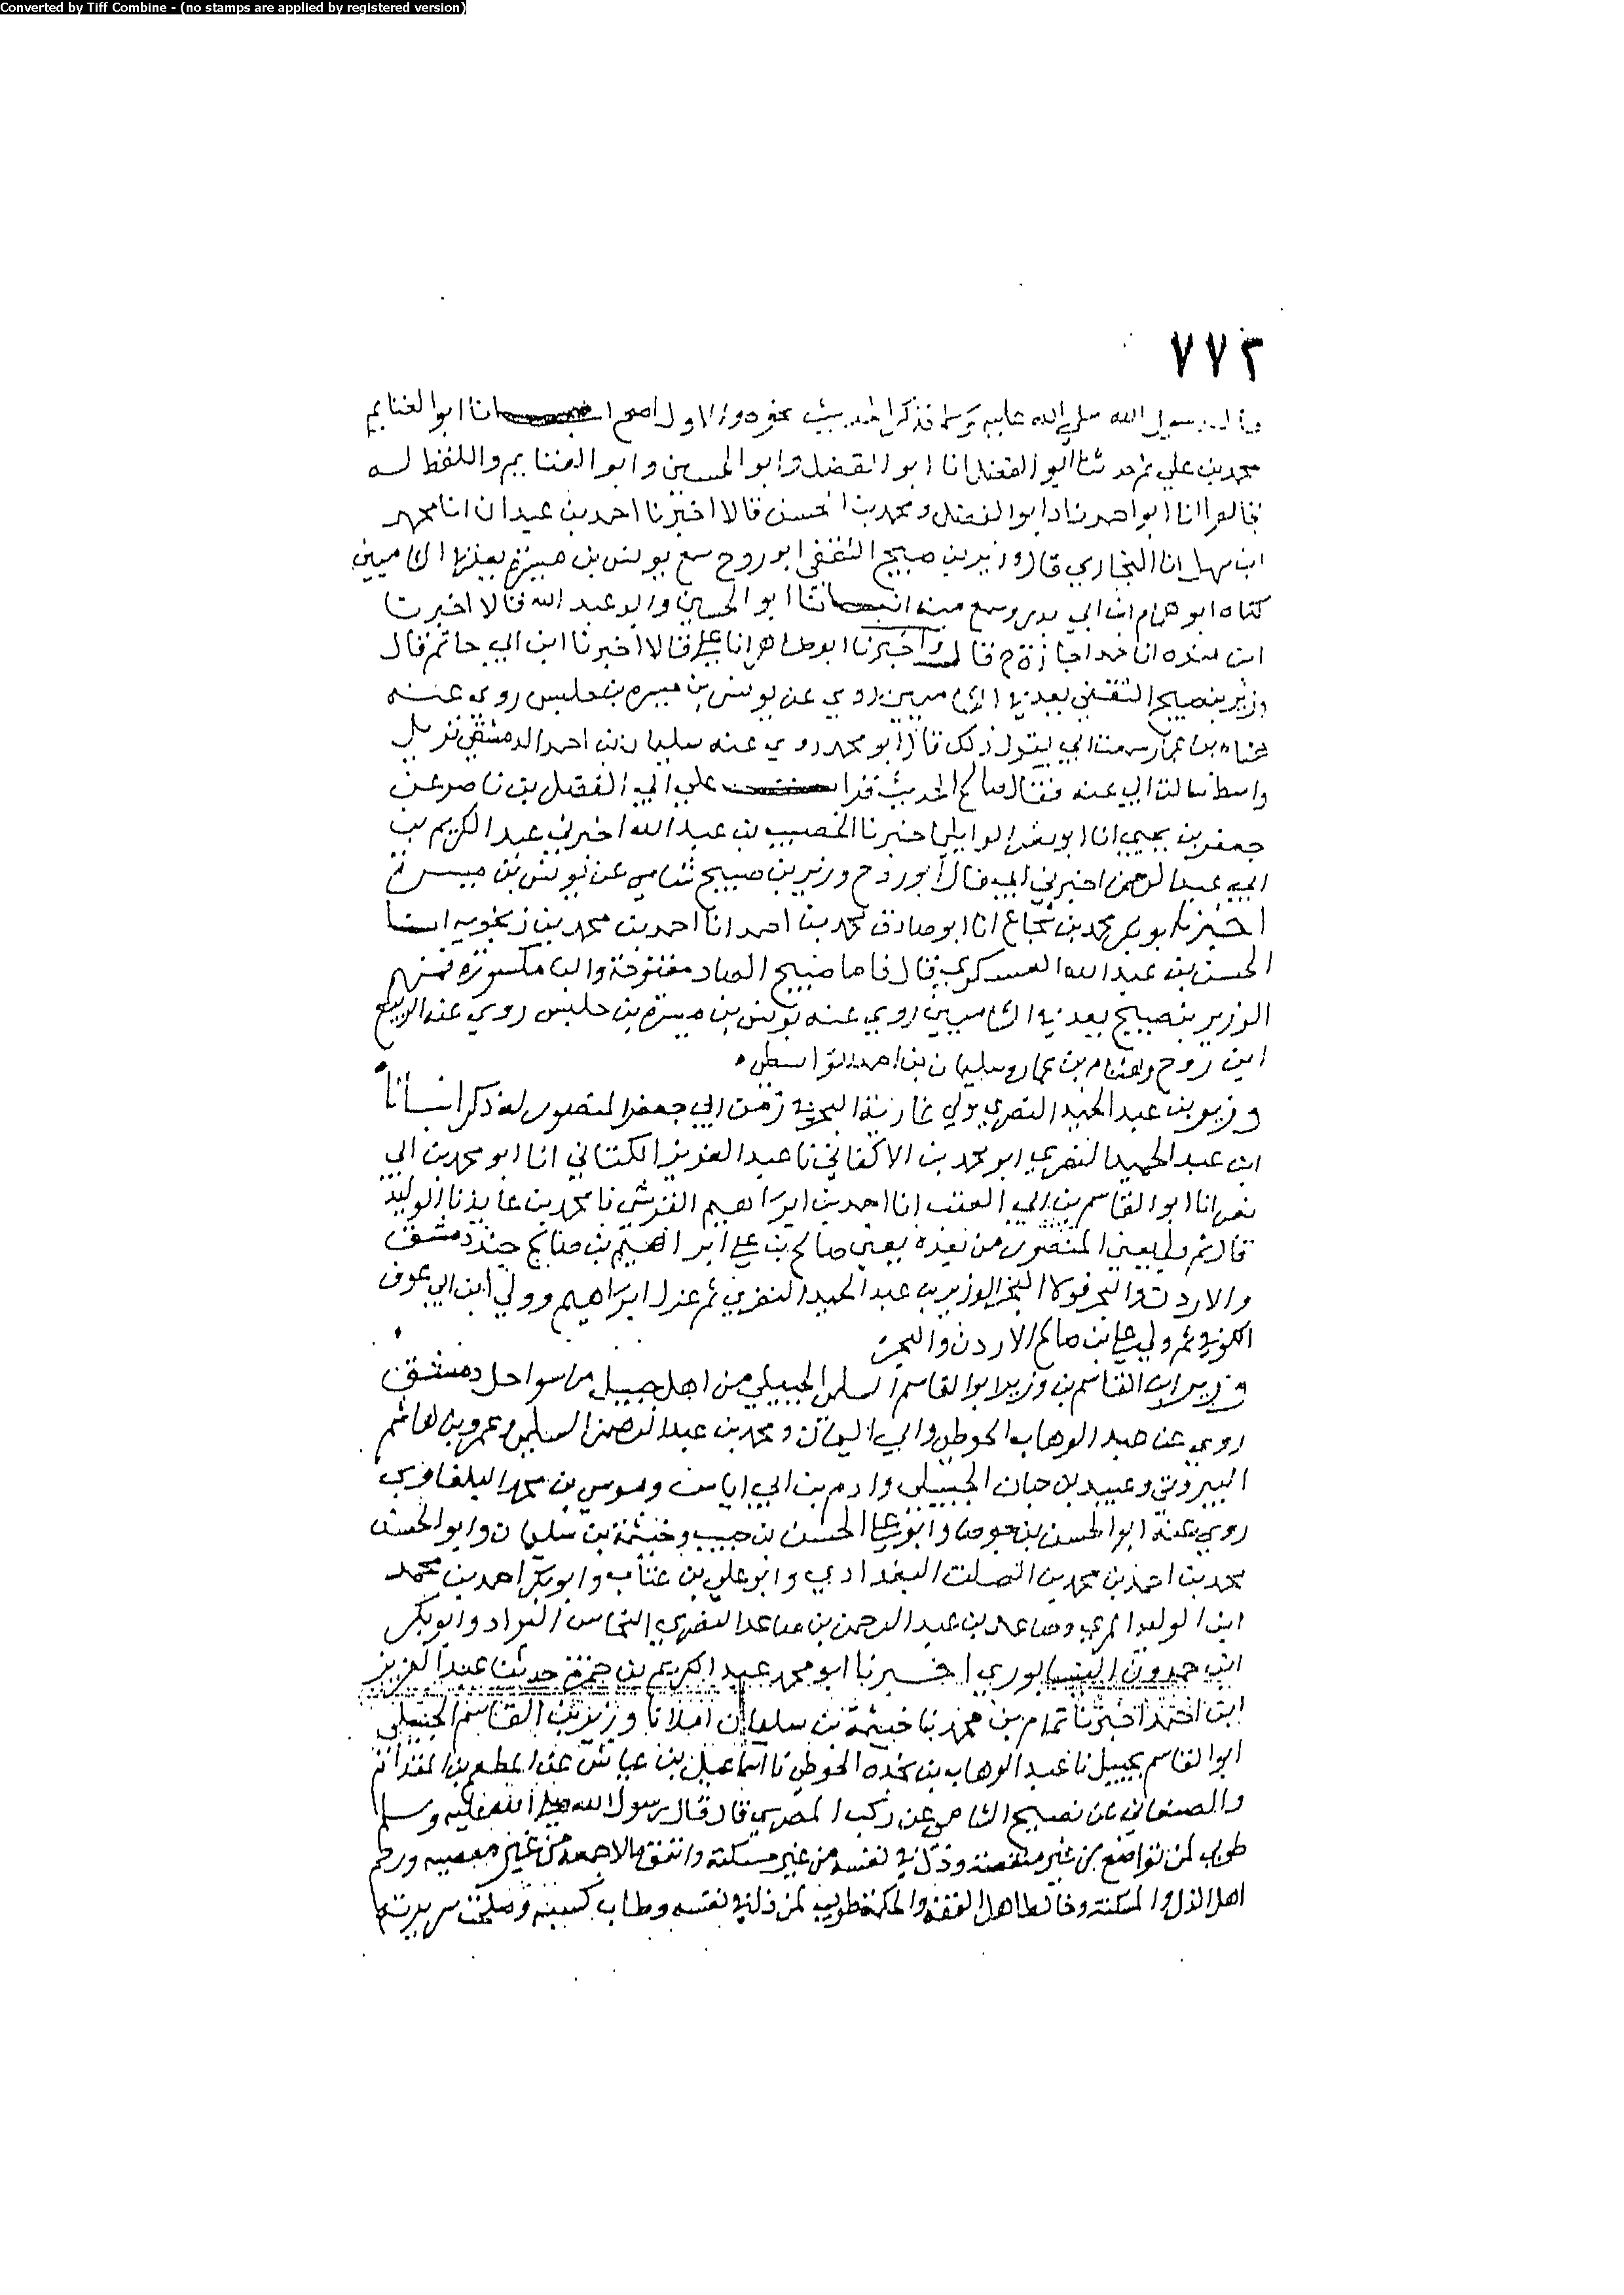 Converted by Tiff Combine - (no stamps are applied by registered version)
٧٧٢
قال رسول الله صلى الله عليه وسلم فذكر الحديث نحو انا ابو الغنايم
محمد بن علي ثم حدثنا ابو الفضل انا ابو الفضل وابو الحسين وابو الغنايم واللفظ له
قالوا انا ابو احمد زاد ابو الفضل ومحمد بن الحسن قالا اخبرنا احمد بن عبدان انا محمد
ابن سهل انا البخاري قال وزير بن صبيح الثقفي ابو روح سمع يونس بن ميسرة يعد في الشاميين
كناه ابو الحسين وابو عبد الله قالا اخبرنا
ابن منده انا حمد اجازة ح قال واخبرنا ابو طاهر انا علي قالا اخبرنا ابن ابي حاتم قال
وزير بن صبيح الثقفي يعد في الشاميين روي عن يونس بن ميسرة بن حلبس روي عنه
هشام بن عمار سمعت ابي يقول ذلك قال ابو محمد روي عنه سليمان بن احمد الدمشقي نزيل
واسط سالت ابي عنه فقال صالح الحديث قرا علي ابي الفضل بن ناصر عن
جعفر بن يحيي انا ابو نصر الوايلي اخبرنا الخصيب بن عبد الله اخبرني عبد الكريم بن
ابي عبد الرحمن اخبرني ابي قال ابو روح وزير بن صبيح شامي عن يونس بن ميسرة
اخبرنا ابو بكر محمد بن شجاع انا ابو صادق محمد بن احمد انا احمد بن محمد بن زنجويه
الحسن بن عبد الله العسكري قال فاما صبيح الصاد مفتوحة والبا مكسورة فمنهم
الوزير بن صبيح يعد في الشاميين روي عنه يونس بن ميسرة بن حلبس روي عنه الربيع
ابن روح وهشام بن عمار وسليمان بن احمد الواسطي
وزير بن عبد الحميد النصري ولي غازية البحر في زمن ابي جعفر المنصور له ذكر
ابن عبد الحميد النصري ابو محمد بن الاكفاني نا عبد العزيز الكتاني انا ابو محمد بن ابي
نصر انا ابو القاسم بن ابي العقب انا احمد بن ابراهيم القرشي نا محمد بن عايذ نا الوليد
قال ثم ولي يعني المنصور من بعده يعني صالح بن علي ابراهيم بن صالح جند دمشق
والاردن والبحر فولا البحر الوزير بن عبد الحميد النصري ثم عزل ابراهيم وولي ابن ابي عوف
ثم ولي علي بن صالح الاردن والبحر
وزير بن القاسم بن وزير ابو القاسم السلمي الجبيلي من اهل جبيل من سواحل دمشق
روي عن عبد الوهاب الحوطي وابي اليمان ومحمد بن عبد الرحمن السلمي وعمرو بن هاشم
البيروتي وعبيد بن حبان الجبيلي وادم بن ابي اياس وموسي بن محمد البلقاوي
روي عنه ابو الحسن بن جوصا وابو علي الحسن بن حبيب وخيثمة بن سليمان وابو الحسن
محمد بن احمد بن محمد بن الصلت البغدادي وابو علي بن عتاب وابو بكر احمد بن محمد
ابن الوليد المري وصاعد بن عبد الرحمن بن صاعد النصري النحاس البراد وابو بكر
ابن حمدون النيسابوري اخبرنا ابو محمد عبد الكريم بن حمزة حدثنا عبد العزيز
ابن احمد اخبرنا تمام بن محمد نا خيثمة بن سليمان املانا وزير بن القاسم الجبيلي
ابو القاسم بجبيل نا عبد الوهاب بن نجدة الحوطي نا اسماعيل بن عياش عن المطعم بن المقدام
والصنعاني عن نصيح الشامي عن ركب المصري قال قال رسول الله صلى الله عليه وسلم
طوبي لمن تواضع من غير منقصة وذل في نفسه من غير مسكنة وانفق مالا جمعه من غير معصيه ورحم
اهل الذل والمسكنة وخالط اهل الفقه والحكمة طوبي لمن ذل في نفسه وطاب كسبه وصلحت سريرته